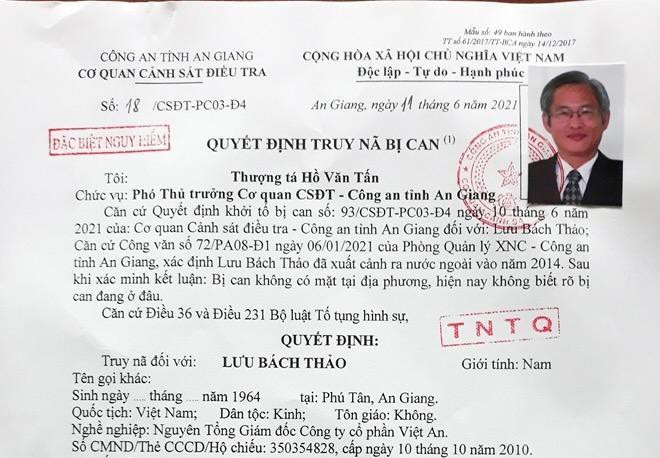 Mẫu số: 49 ban hành theo
TT số 61/2017/TT-BCA ngày 14/12/2017
CÔNG AN TỈNH AN GIANG
CƠ QUAN CẢNH SÁT ĐIỀU TRA
CỘNG HÒA XÃ HỘI CHỦ NGHĨA VIỆT NAM
Độc lập - Tự do - Hạnh phúc
Số: 18 /CSĐT-PC03-Đ4
An Giang, ngày 11 tháng 6 năm 2021
ĐẶC BIỆT NGUY HIỂM
QUYẾT ĐỊNH TRUY NÃ BỊ CAN (1)
Tôi: Thượng tá Hồ Văn Tấn
Chức vụ: Phó Thủ trưởng Cơ quan CSĐT - Công an tỉnh An Giang.
Căn cứ Quyết định khởi tố bị can số: 93/CSĐT-PC03-Đ4 ngày 10 tháng 6 năm
2021 của: Cơ quan Cảnh sát điều tra - Công an tỉnh An Giang đối với: Lưu Bách Thảo;
Căn cứ Công văn số 72/PA08-Đ1 ngày 06/01/2021 của Phòng Quản lý XNC - Công an
tỉnh An Giang, xác định Lưu Bách Thảo đã xuất cảnh ra nước ngoài vào năm 2014. Sau
khi xác minh kết luận: Bị can không có mặt tại địa phương, hiện nay không biết rõ bị
can đang ở đâu.
Căn cứ Điều 36 và Điều 231 Bộ luật Tố tụng hình sự,
TNTQ
QUYẾT ĐỊNH:
Truy nã đối với: LƯU BÁCH THẢO Giới tính: Nam
Tên gọi khác:
Sinh ngày ..... tháng ..... năm 1964 tại: Phú Tân, An Giang.
Quốc tịch: Việt Nam; Dân tộc: Kinh; Tôn giáo: Không.
Nghề nghiệp: Nguyên Tổng Giám đốc Công ty cổ phần Việt An.
Số CMND/Thẻ CCCD/Hộ chiếu: 350354828, cấp ngày 10 tháng 10 năm 2010.